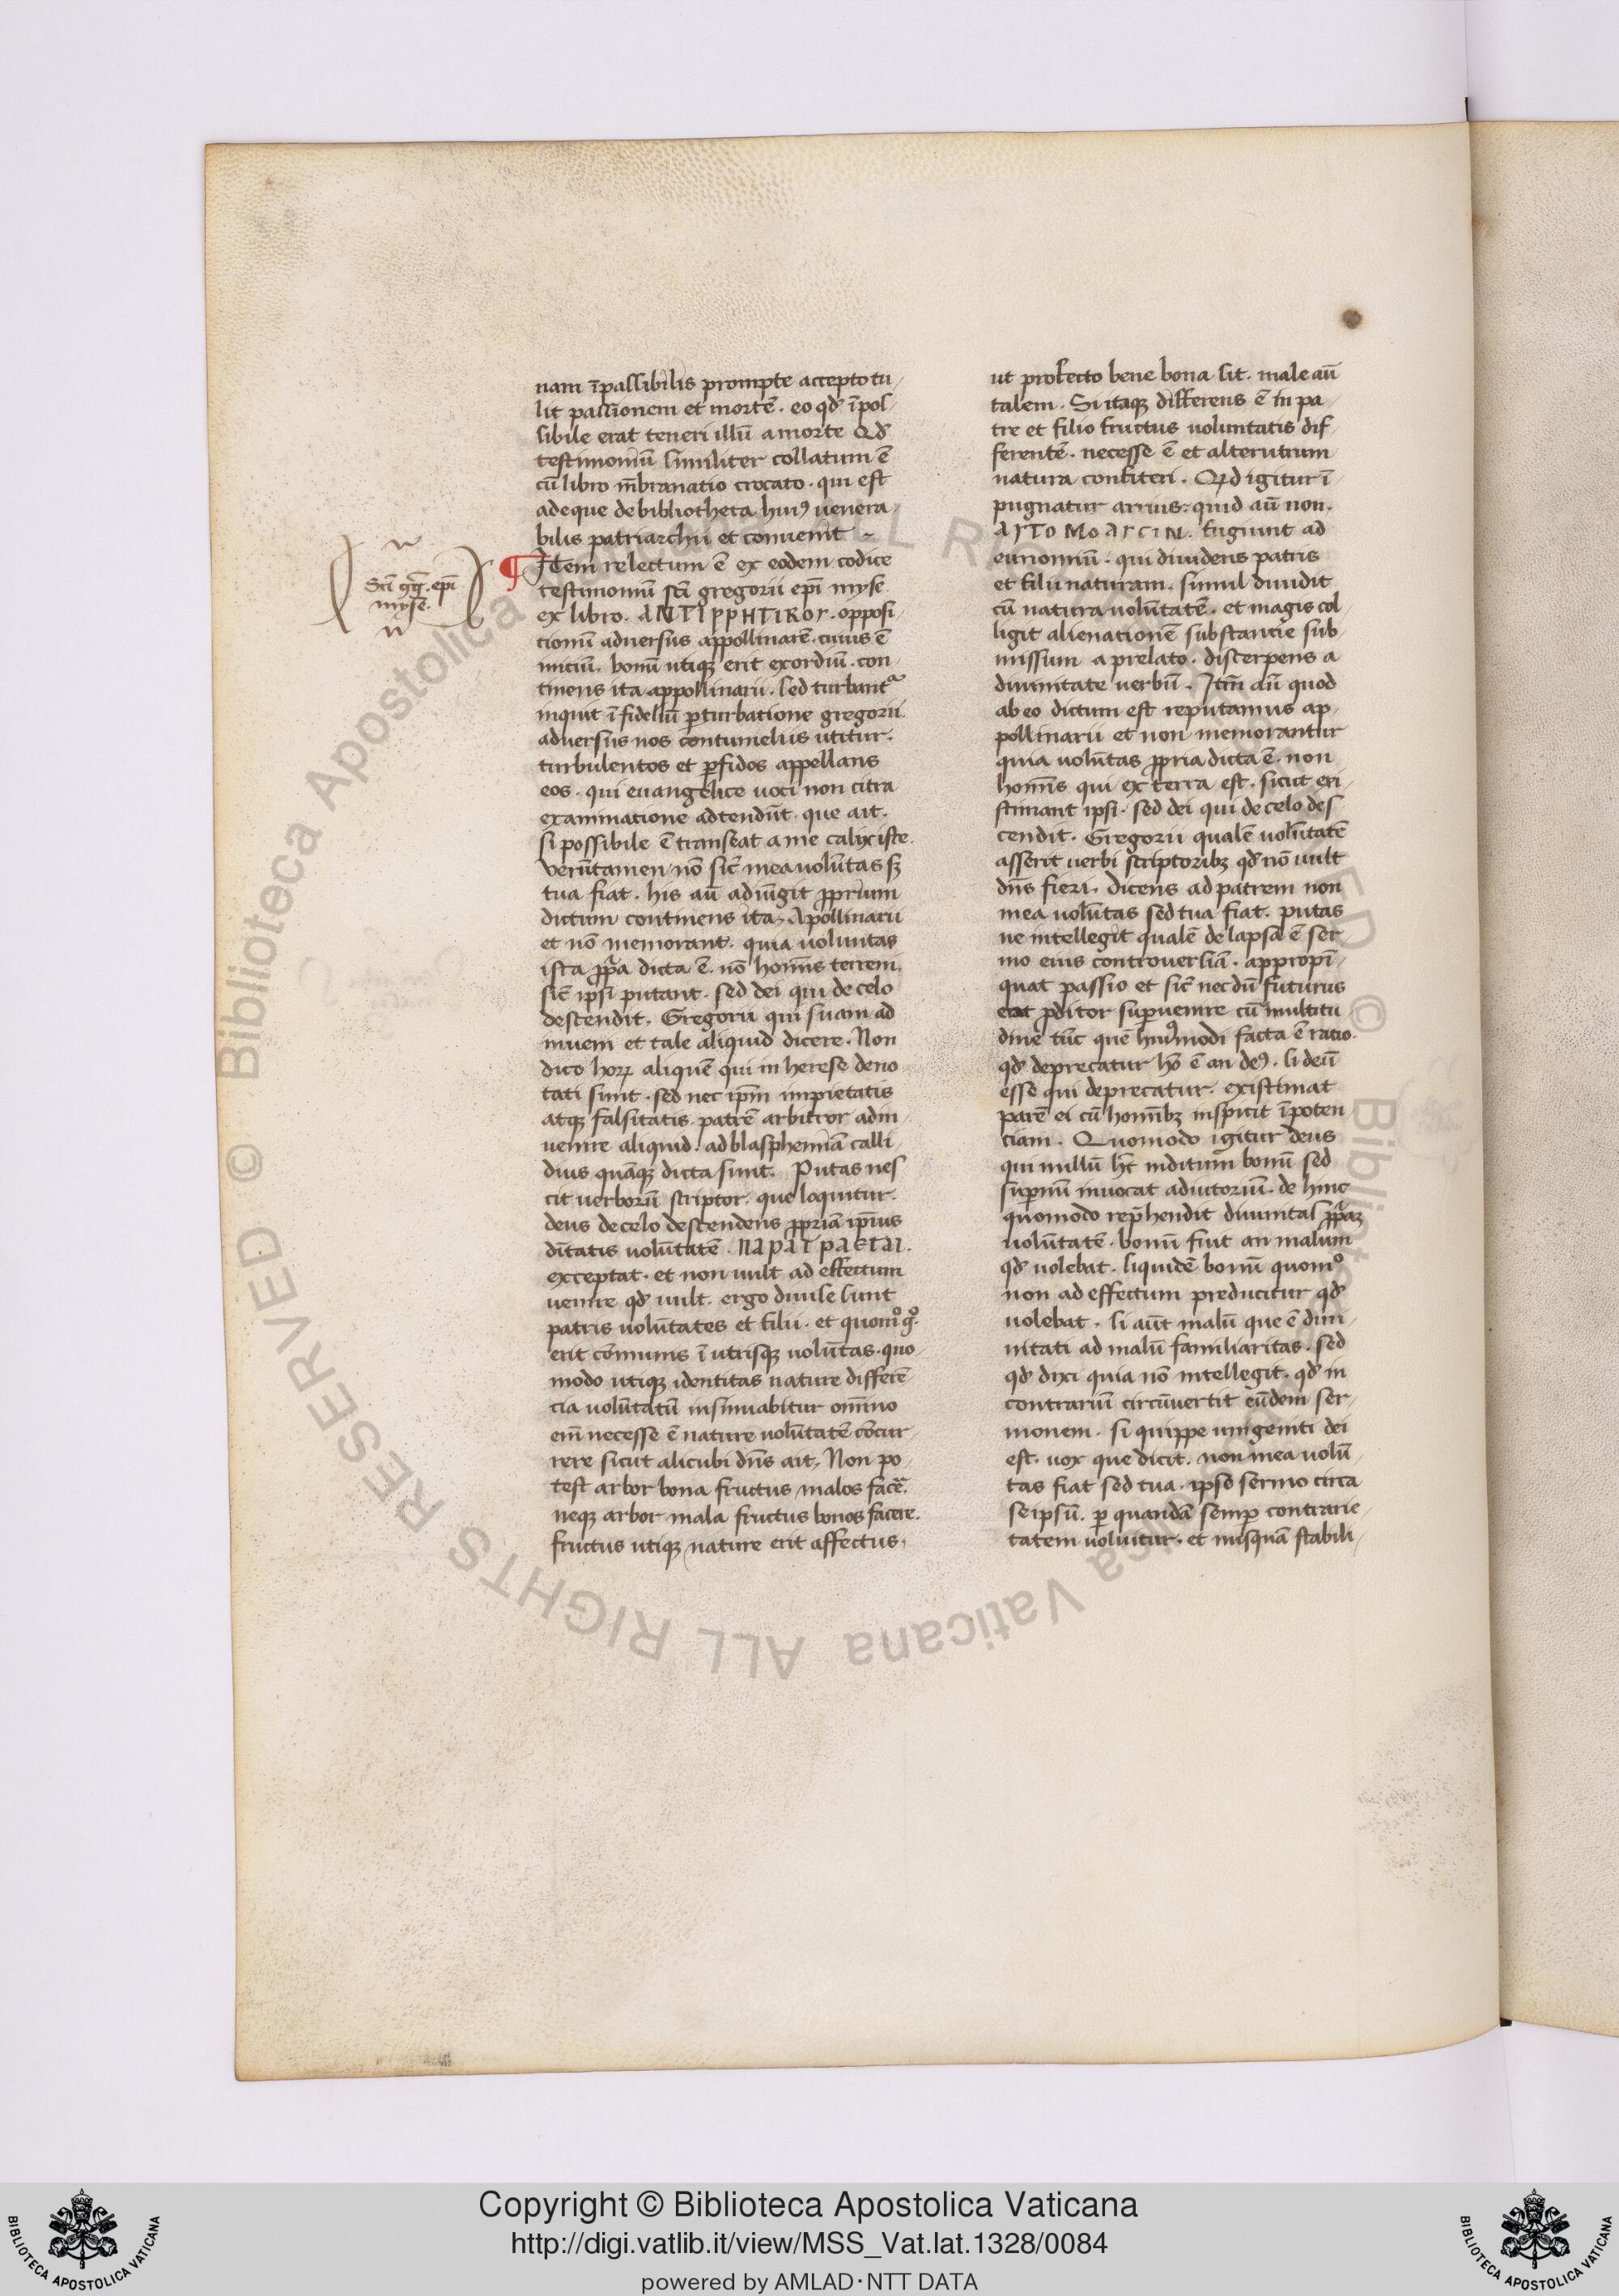 nam īpassibilis prompte accepto tu
lit passionem et mortē. eo qd īpos
sibile erat teneri illū a morte Qd
testimoniū similiter collatum ē
cū libro mēbranatio crocato. qui est
adeque de bibliotheta huiꝰ uenera
bilis patriarchii et conuenit
¶ Item relectum ē ex eodem codice
testimoniū scī gregorii epī nyse
ex libro. ANTIPPHTIKOY. opposi
cionū aduersus appollinarē. cuius ē
iniciū. bonū utiqꝫ erit exordiū. con
tinens ita appollinarii. sed turbant
inquit ī fideliū ꝑturbatione gregorii.
aduersus nos contumeliis utitur.
turbulentos et ꝑfidos appellans
eos. qui euangelice uoci non citra
examinatione adtendūt. que ait.
si possibile ē transeat a me calix iste.
verūtamen nō sic̄ mea volūtas sꝫ
tua fiat. his aū adiūgit ꝓprium
dictum continens ita. Apollinarii
et nō memorant. quia uoluntas
ista ꝓp̄a dicta ē. nō homīs terreni.
sic̄ ipsi putant. sed dei qui de celo
descendit. Gregorii qui suam ad
inuem et tale aliquid dicere. Non
dico hoꝝ aliquē qui in herese deno
tati sunt. sed nec ip̄m impietatis
atqꝫ falsitatis patrē arbitror adin
uenire aliquid. ad blasphemiā calli
dius quāqꝫ dicta sunt. Putas nes
cit uerborū scriptor. que loquitur.
deus de celo descendens ꝓpriā ip̄ius
dītatis volūtatē. ΠΑΡΑΙΡΑΕΤΑΙ.
exceptat. et non uult ad effectum
uenire qd uult. ergo diuise sunt
patris uolūtates et filii. et quomº gº
erit cōmunis ī utrisqꝫ uolūtas. quo
modo utiqꝫ identitas nature differē
cia volūtatū insinuabitur om̄ino
em̄ necesse ē nature volūtatē cōcur
rere sicut alicubi dn̄s ait. Non po
test arbor bona fructus malos facere.
neqꝫ arbor mala fructus bonos facere.
fructus utiqꝫ nature erit affectus.
Scī gḡ. epī
nyse.
ut profecto bene bona sit. male aū
talem. Si itaqꝫ differens ē in pa
tre et filio fructus uoluntatis dif
ferentē. necesse ē et alterutrum
natura confiteri. Qd igitur ī
pugnatur arrius. quid aū non.
AYTOMOAYCIN. fugiunt ad
eunomiū. qui diuidens patris
et filii naturam. simul diuidit
cū natura volūtatē. et magis col
ligit alienationē substantie sub
missum a prelato. discerpens a
diuinitate uerbū. Itm̄ aū quod
ab eo dictum est reputamus ap
pollinarii et non memorantur
quia volūtas ꝓpria dicta ē. non
homīs qui ex terra est. sicut exi
stimant ipsi. sed dei qui de celo des
cendit. Gregorii qualē uolūtatē
asserit uerbi scriptoribꝫ qd nō uult
dn̄s fieri. dicens ad patrem non
mea uolūtas sed tua fiat. putas
ne intellegit qualē de lapsa ē ser
mo eius controuersiā. appropī
quat passio et sic̄ nec dū futurus
erat ꝓditor suꝑuenire cū multitu
dine tūc quē huiꝰmodi facta ē ratio.
qd deprecatur hō ē an deꝰ. si deū
esse qui deprecatur. existimat
parē ei cū hominībꝫ inspicit īpoten
ciam. Quomodo igitur deus
qui nullū ht̄ inditum bonū sed
suꝑnū inuocat adiutoriū. de hinc
quomodo rep̄hendit diuinitas ꝓp̄aꝫ
uolūtatē. bonū fuit an malum
qd uolebat. siquidē bonū quomº
non ad effectum preducitur qd
uolebat. si aūt malū que ē diui
nitati ad malū familiaritas. sed
qd dixi quia nō intellegit. qd in
contrariū circūuertit eūdem ser
monem. si quippe unigeniti dei
est. uox que dicit. non mea uolū
tas fiat sed tua. ipse sermo circa
se ipsū. ꝑ quandā semꝑ contrarie
tatem uoluitur. et nusquā stabili
Copyright © Biblioteca Apostolica Vaticana
http://digi.vatlib.it/view/MSS_Vat.lat.1328/0084
powered by AMLAD·NTT DATA
BIBLIOTECA APOSTOLICA VATICANA
BIBLIOTECA APOSTOLICA VATICANA
© Biblioteca Apostolica Vaticana ALL RIGHTS RESERVED